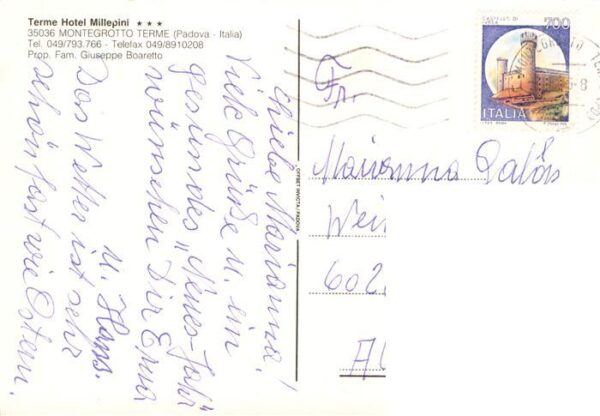 Terme Hotel Millepini ★ ★ ★
35036 MONTEGROTTO TERME (Padova - Italia)
Tel. 049/793.766 - Telefax 049/8910208
Prop. Fam. Giuseppe Boaretto
Liebe Marianna!
Viele Grüße u. ein
gesundes "Neues-Jahr"
wünschen Dir Erna
u. Hans.
Das Wetter ist sehr
schön fast wie Ostern.
OFFSET INVICTA / PADOVA
CASTELLO DI
700
ITALIA
Fr.
Marianna
Wei
602
A